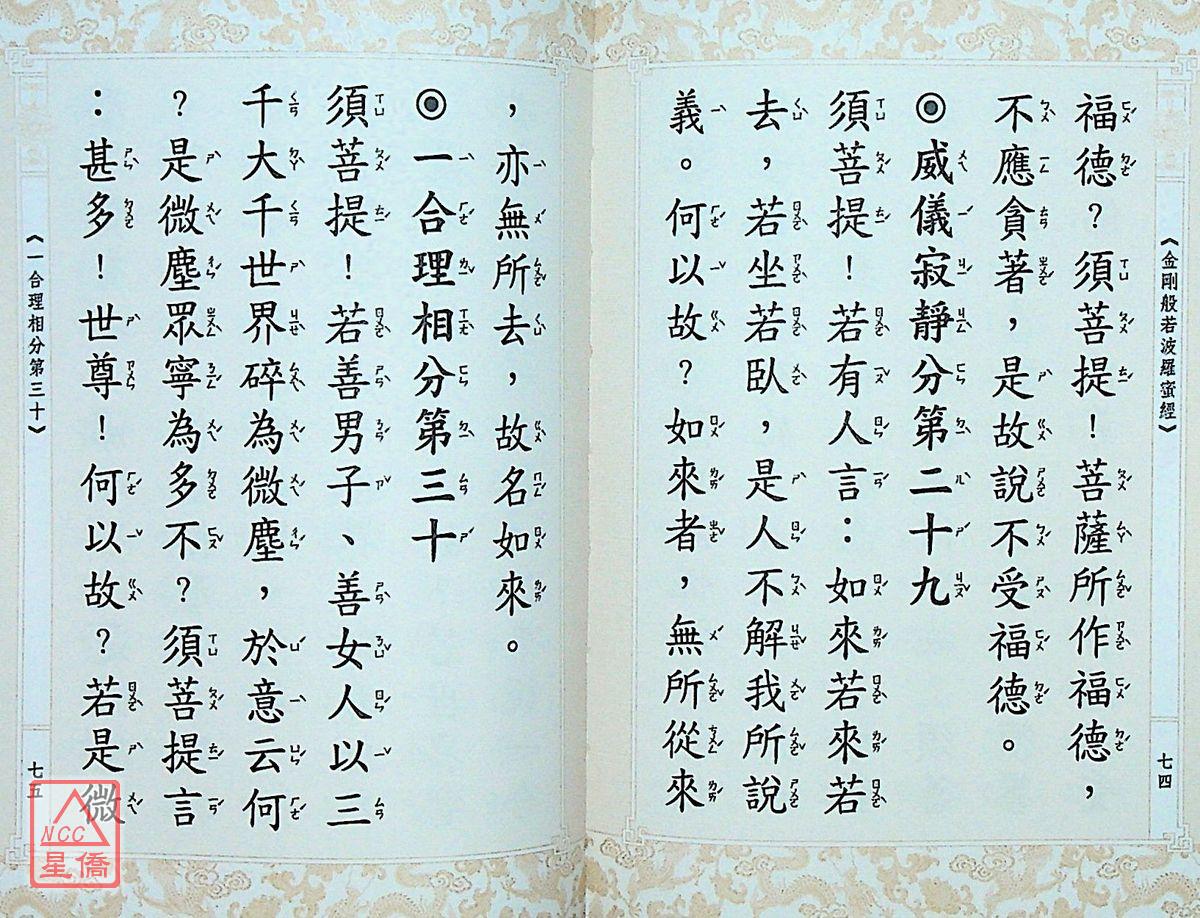 《金剛般若波羅蜜經》
福德？須菩提！菩薩所作福德，
不應貪著，是故說不受福德。
◎威儀寂靜分第二十九
須菩提！若有人言：如來若來若
去，若坐若臥，是人不解我所說
義。何以故？如來者，無所從來
七四
，亦無所去，故名如來。
◎一合理相分第三十
須菩提！若善男子、善女人以三
千大千世界碎為微塵，於意云何
？是微塵眾寧為多不？須菩提言
：甚多！世尊！何以故？若是微
《一合理相分第三十》
七五
NCC
星僑